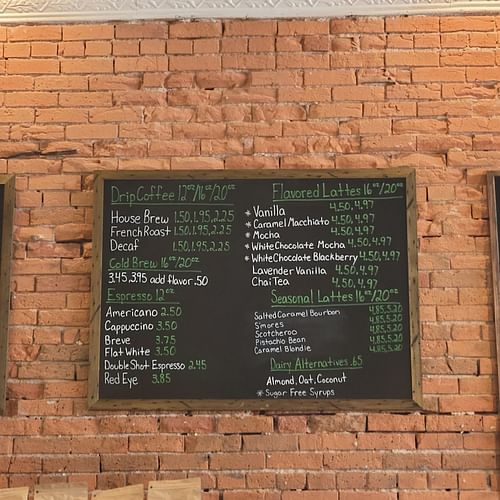 Drip Coffee 12oz/16oz/20oz
House Brew 1.50, 1.95, 2.25
French Roast 1.50, 1.95, 2.25
Decaf 1.50, 1.95, 2.25
Cold Brew 16oz/20oz
3.45, 3.95 add flavor .50
Espresso 12oz
Americano 2.50
Cappuccino 3.50
Breve 3.75
Flat White 3.50
Double Shot Espresso 2.45
Red Eye 3.85
Flavored Lattes 16oz/20oz
* Vanilla 4.50, 4.97
* Caramel Macchiato 4.50, 4.97
* Mocha 4.50, 4.97
* White Chocolate Mocha 4.50, 4.97
* White Chocolate Blackberry 4.50, 4.97
Lavender Vanilla 4.50, 4.97
Chai Tea 4.50, 4.97
Seasonal Lattes 16oz/20oz
Salted Caramel Bourbon 4.85, 5.20
S'mores 4.85, 5.20
Scotcheroo 4.85, 5.20
Pistachio Bean 4.85, 5.20
Caramel Blondie 4.85, 5.20
Dairy Alternatives .65
Almond, Oat, Coconut
* Sugar Free Syrups